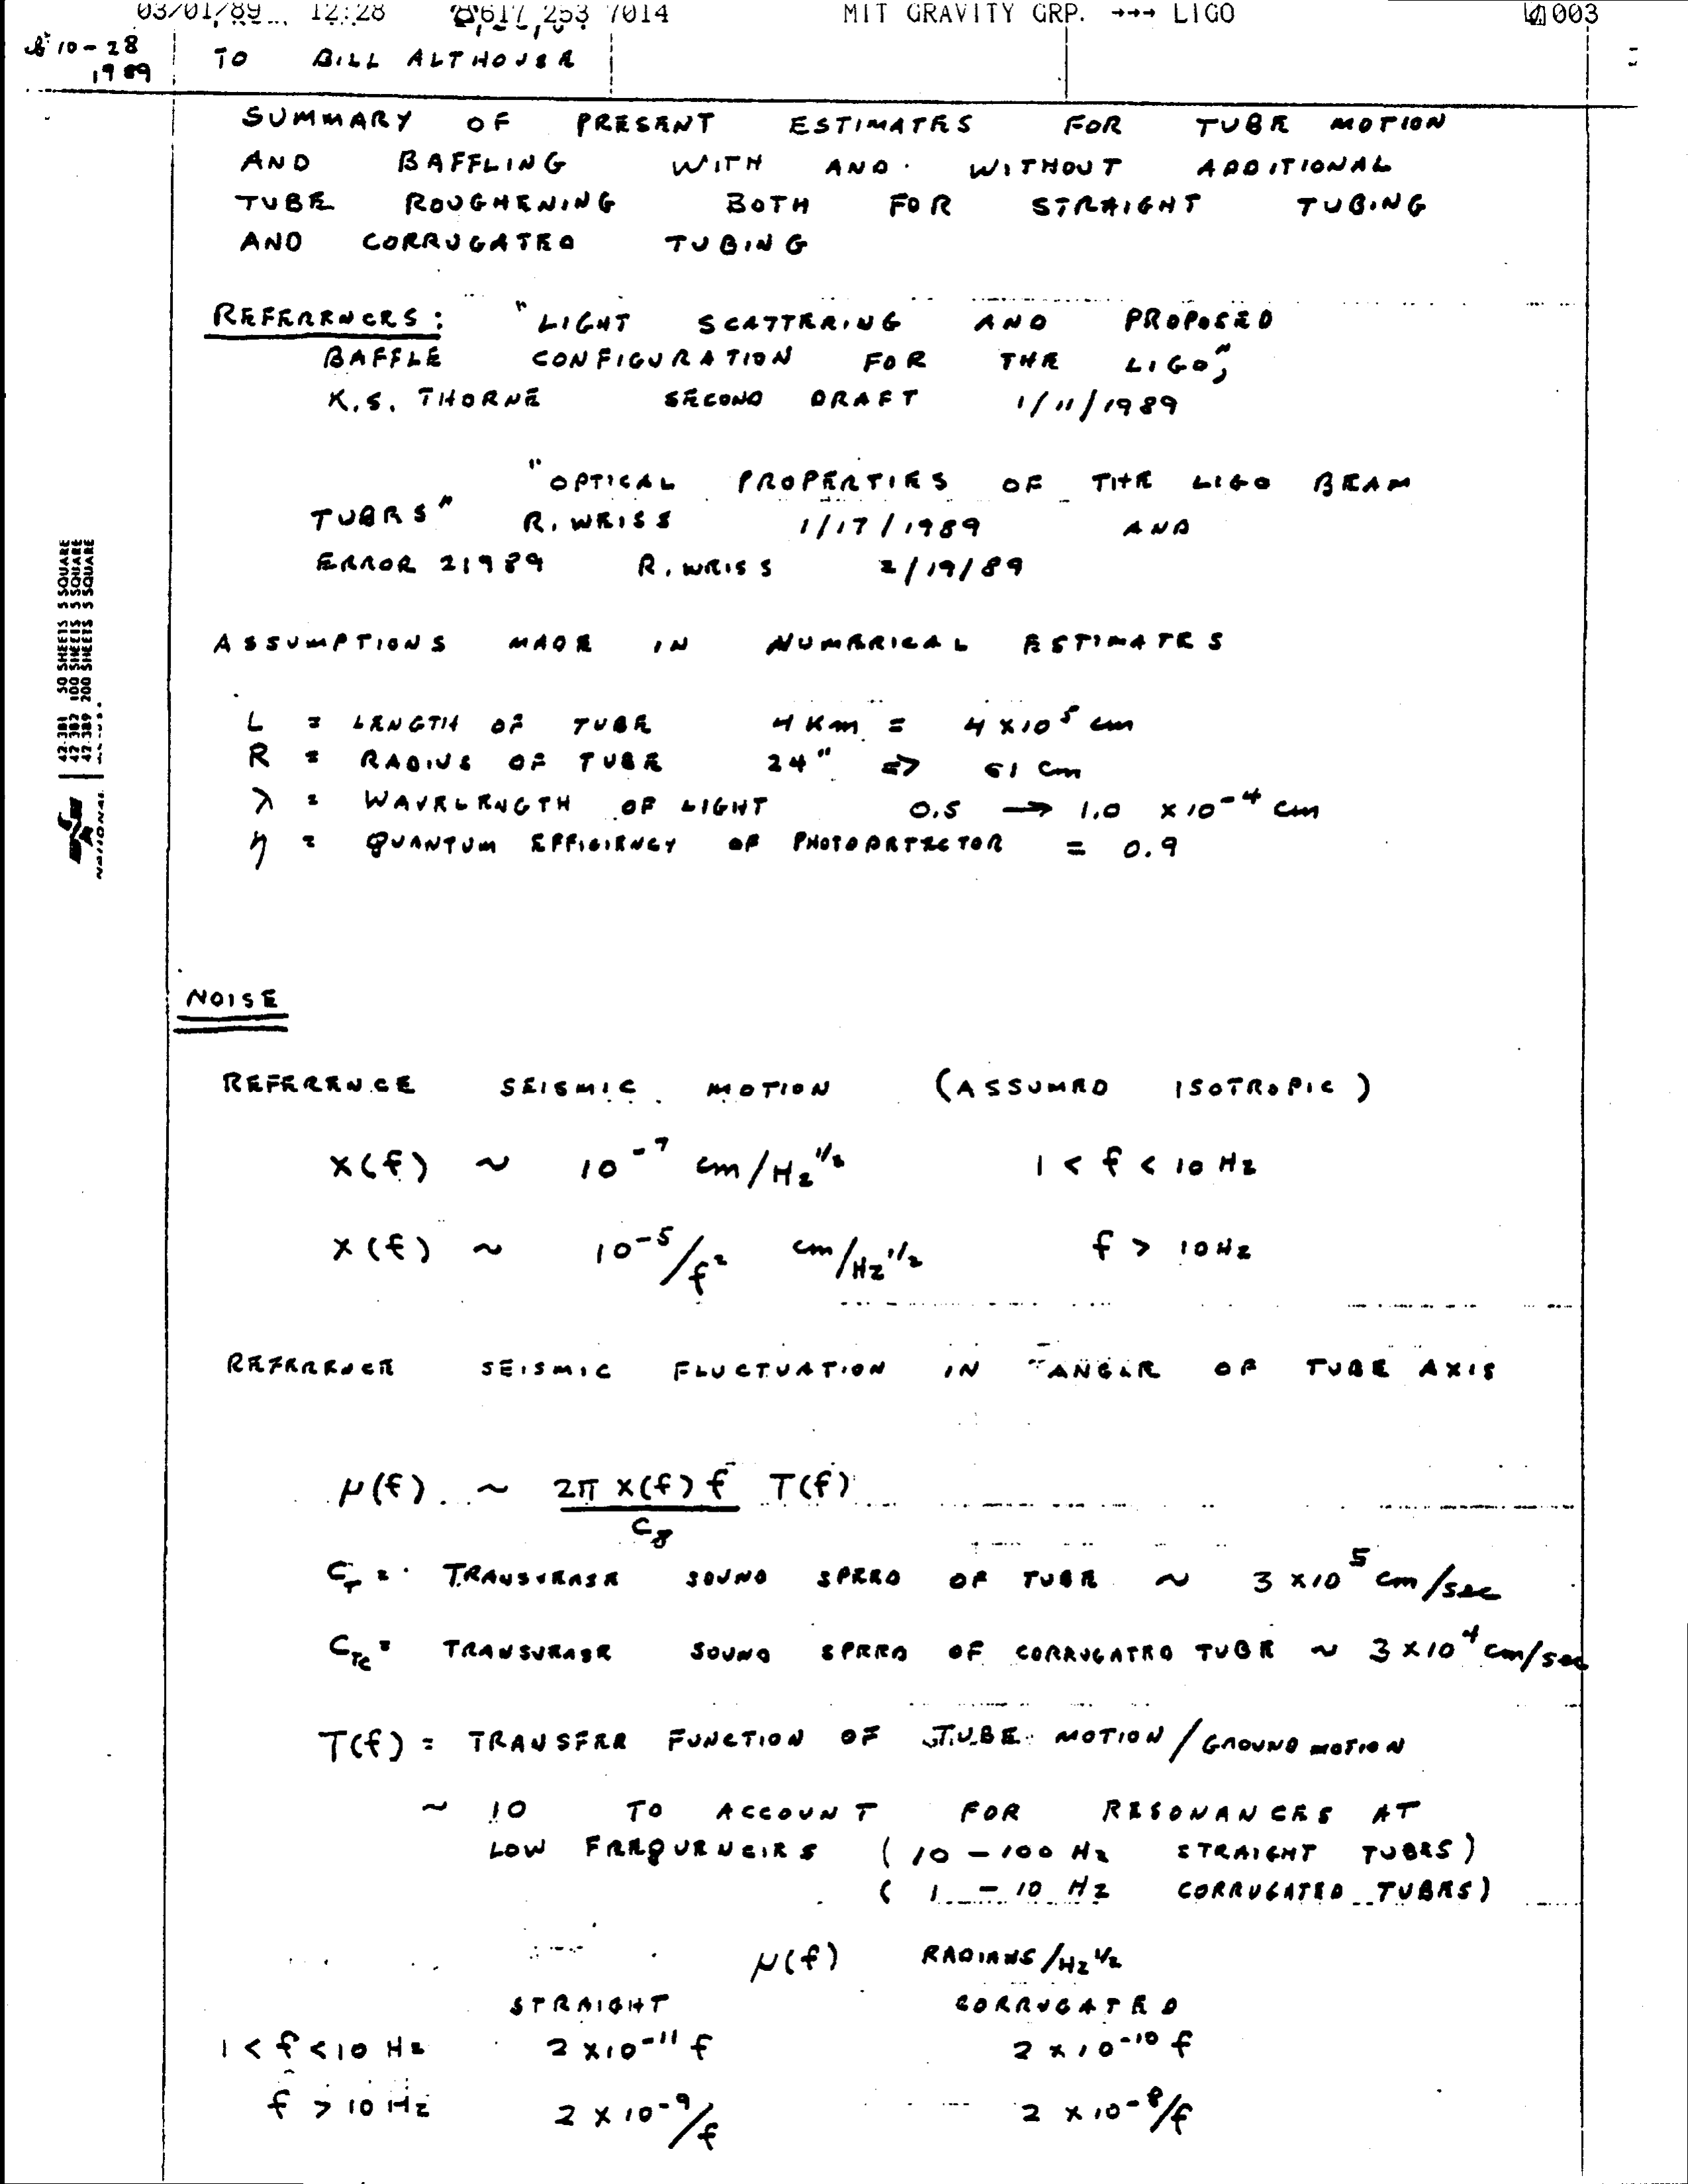 03/01/89 12:28 ☎617 253 7014 MIT GRAVITY GRP. →→→ LIGO 003
10-28
1989
TO BILL ALTHOUSE
SUMMARY OF PRESENT ESTIMATES FOR TUBE MOTION
AND BAFFLING WITH AND WITHOUT ADDITIONAL
TUBE ROUGHENING BOTH FOR STRAIGHT TUBING
AND CORRUGATED TUBING
REFERENCES: "LIGHT SCATTERING AND PROPOSED
BAFFLE CONFIGURATION FOR THE LIGO",
K.S. THORNE SECOND DRAFT 1/11/1989
"OPTICAL PROPERTIES OF THE LIGO BEAM
TUBES" R. WEISS 1/17/1989 AND
ERROR 21989 R. WEISS 2/19/89
42-381 50 SHEETS 5 SQUARE
42-382 100 SHEETS 5 SQUARE
42-389 200 SHEETS 5 SQUARE
NATIONAL
ASSUMPTIONS MADE IN NUMERICAL ESTIMATES
L = LENGTH OF TUBE 4 Km = 4 x 10^5 cm
R = RADIUS OF TUBE 24" => 61 cm
λ = WAVELENGTH OF LIGHT 0.5 → 1.0 x 10^-4 cm
η = QUANTUM EFFICIENCY OF PHOTODETECTOR = 0.9
NOISE
REFERENCE SEISMIC MOTION (ASSUMED ISOTROPIC)
x(f) ~ 10^-7 cm/Hz^1/2 1 < f < 10 Hz
x(f) ~ 10^-5/f^2 cm/Hz^1/2 f > 10 Hz
REFERENCE SEISMIC FLUCTUATION IN ANGLE OF TUBE AXIS
μ(f) ~ 2π x(f) f / C_T T(f)
C_T = TRANSVERSE SOUND SPEED OF TUBE ~ 3 x 10^5 cm/sec
C_TC = TRANSVERSE SOUND SPEED OF CORRUGATED TUBE ~ 3 x 10^4 cm/sec
T(f) = TRANSFER FUNCTION OF TUBE MOTION/GROUND MOTION
~ 10 TO ACCOUNT FOR RESONANCES AT
LOW FREQUENCIES (10 - 100 Hz STRAIGHT TUBES)
(1 - 10 Hz CORRUGATED TUBES)
μ(f) RADIANS/Hz^1/2
STRAIGHT CORRUGATED
1 < f < 10 Hz 2 x 10^-11 f 2 x 10^-10 f
f > 10 Hz 2 x 10^-9/f 2 x 10^-8/f